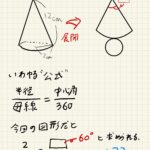 12cm
展開
2cm
いわゆる"公式"
半径/母線 = 中心角/360
今回の図形だと
60° と求められる.
2